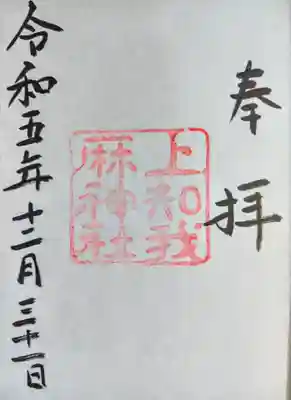 奉拝
上知我
麻神社
令和五年十二月三十一日